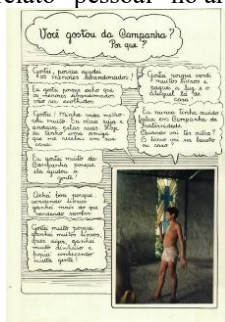 relato pessoal no ar
Você gostou da Campanha?
Por que?
Gostei, porque ajudei
os menores abandonados!
Eu gostei porque acho que
os menores abandonados
vão ser acolhidos.
Gostei! Minha vida melho-
rou muito. Eu vivia suja e
andava pelas ruas. Hoje
eu tenho uma amiga
que me recebeu em sua
casa.
Eu gostei muito da
Campanha porque
ela ajudou a
gente!
Achei boa porque
vendendo livros
ganhei mais do que
vendendo
Gostei muito porque
ganhei muitos livros,
fiz amigos, ganhei
muito dinheiro e
fiquei conhecendo
muita gente!
Gostei porque vendi
muitos livros e
paguei a luz e o
aluguel lá de
casa!
Eu nunca tinha ouvido
falar em Campanha de
Fraternidade.
Quando vai ter outra?
O livro vai na escola
ou casa?